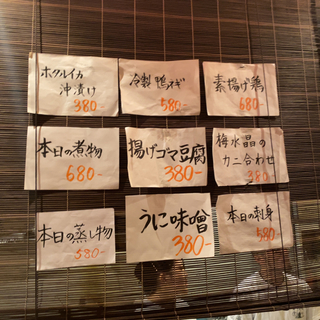 ホタルイカ
沖漬け
380-
冷製鴨ネギ
580-
素揚げ鶏
680-
本日の煮物
680-
揚げゴマ豆腐
380-
梅水晶の
カニ合わせ
380
本日の蒸し物
580-
うに味噌
380-
本日の刺身
580